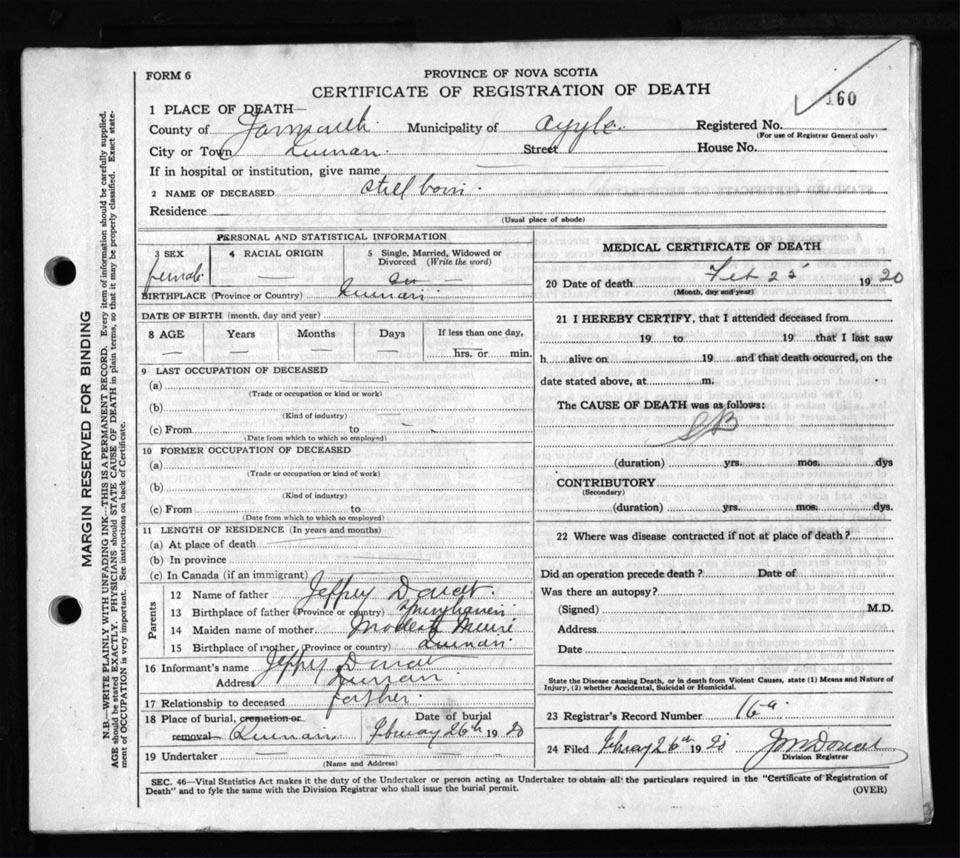 FORM 6
PROVINCE OF NOVA SCOTIA
CERTIFICATE OF REGISTRATION OF DEATH
160
1 PLACE OF DEATH—
County of Yarmouth Municipality of Argyle Registered No.
(For use of Registrar General only)
City or Town Quinan Street House No.
If in hospital or institution, give name
2 NAME OF DECEASED still born
Residence
(Usual place of abode)
MARGIN RESERVED FOR BINDING
N.B.—WRITE PLAINLY WITH UNFADING INK—THIS IS A PERMANENT RECORD. Every item of information should be carefully supplied.
AGE should be stated EXACTLY. PHYSICIANS should STATE CAUSE OF DEATH in plain terms, so that it may be properly classified. Exact state-
ment of OCCUPATION is very important. See instructions on back of Certificate.
PERSONAL AND STATISTICAL INFORMATION
3 SEX 4 RACIAL ORIGIN 5 Single, Married, Widowed or
Divorced (Write the word)
female —
BIRTHPLACE (Province or Country) Quinan
DATE OF BIRTH (month, day and year)
8 AGE Years Months Days If less than one day,
— — — — hrs. or min.
9 LAST OCCUPATION OF DECEASED
(a)
(Trade or occupation or kind or work)
(b)
(Kind of industry)
(c) From to
(Date from which to which so employed)
10 FORMER OCCUPATION OF DECEASED
(a)
(Trade or occupation or kind of work)
(b)
(Kind of industry)
(c) From to
(Date from which to which so employed)
11 LENGTH OF RESIDENCE (In years and months)
(a) At place of death
(b) In province
(c) In Canada (if an immigrant)
Parents
12 Name of father Jeffrey Doucet
13 Birthplace of father (Province or country)
14 Maiden name of mother Meuse
15 Birthplace of mother (Province or country) Quinan
16 Informant's name Jeffrey Doucet
Address Quinan
17 Relationship to deceased father
18 Place of burial, cremation or Date of burial
removal Quinan 26th 1920
19 Undertaker
(Name and Address)
MEDICAL CERTIFICATE OF DEATH
20 Date of death Feb 25 1920
(Month, day and year)
21 I HEREBY CERTIFY, that I attended deceased from
19 to 19 that I last saw
h alive on 19 and that death occurred, on the
date stated above, at m.
The CAUSE OF DEATH was as follows:
SB
(duration) yrs. mos. dys
CONTRIBUTORY
(Secondary)
(duration) yrs. mos. dys.
22 Where was disease contracted if not at place of death?
Did an operation precede death? Date of
Was there an autopsy?
(Signed) M.D.
Address
Date
State the Disease causing Death, or in death from Violent Causes, state (1) Means and Nature of
Injury, (2) whether Accidental, Suicidal or Homicidal.
23 Registrar's Record Number
24 Filed 26th 1920 Doucet
Division Registrar
SEC. 46—Vital Statistics Act makes it the duty of the Undertaker or person acting as Undertaker to obtain all the particulars required in the "Certificate of Registration of
Death" and to fyle the same with the Division Registrar who shall issue the burial permit.
(OVER)